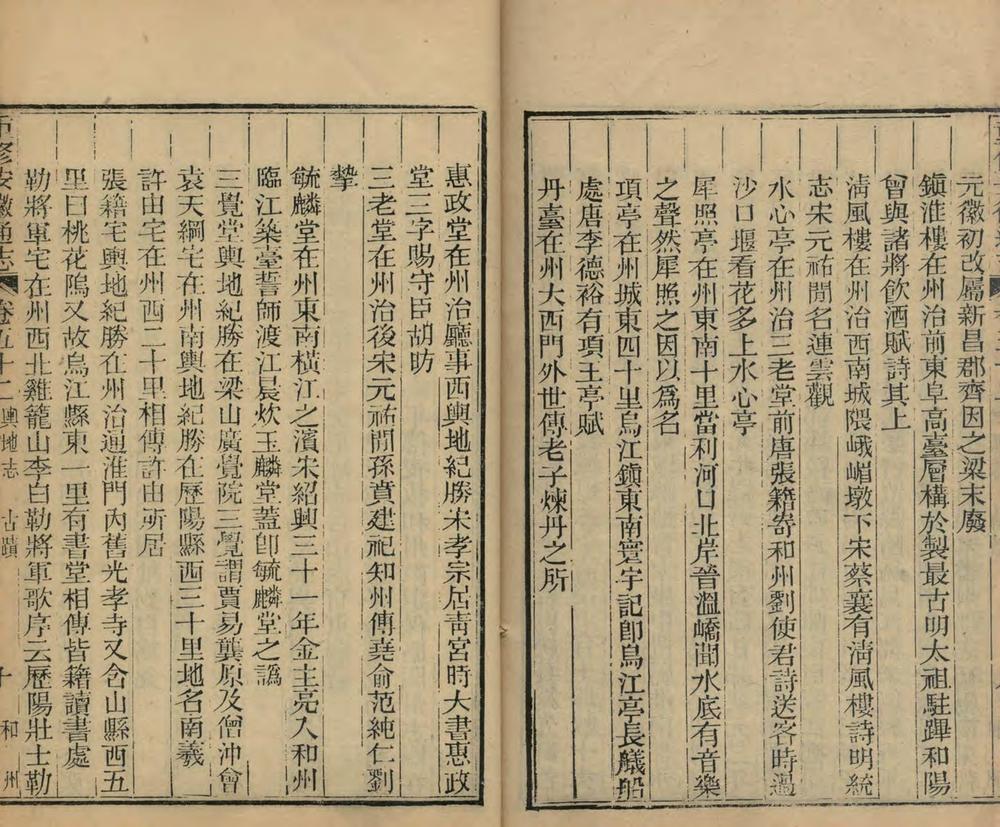 元徽初改屬新昌郡齊因之梁末廢
鎭淮樓在州治前東阜高臺層構於製最古明太祖駐蹕和陽
曾與諸將飮酒賦詩其上
淸風樓在州治西南城隈峨嵋墩下宋蔡襄有淸風樓詩明統
志宋元祐閒名連雲觀
水心亭在州治三老堂前唐張籍寄和州劉使君詩送客時過
沙口堰看花多上水心亭
犀照亭在州東南十里當利河口北岸晉溫嶠聞水底有音樂
之聲然犀照之因以爲名
項亭在州城東四十里烏江鎭東南寰宇記卽烏江亭長艤船
處唐李德裕有項王亭賦
丹臺在州大西門外世傳老子煉丹之所
惠政堂在州治廳事西輿地紀勝宋孝宗居靑宮時大書惠政
堂三字賜守臣胡昉
三老堂在州治後宋元祐閒孫賁建祀知州傅堯俞范純仁劉
摯
毓麟堂在州東南橫江之濱宋紹興三十一年金主亮入和州
臨江築臺誓師渡江晨炊玉麟堂蓋卽毓麟堂之譌
三覺堂輿地紀勝在梁山廣覺院三覺謂賈易龔原及僧沖會
袁天綱宅在州南輿地紀勝在歷陽縣西三十里地名南義
許由宅在州西二十里相傳許由所居
張籍宅輿地紀勝在州治通淮門內舊光孝寺又含山縣西五
里曰桃花隖又故烏江縣東一里有書堂相傳皆籍讀書處
勒將軍宅在州西北雞籠山李白勒將軍歌序云歷陽壯士勒
修安徽通志 卷五十二 輿地志 古蹟 十 和州